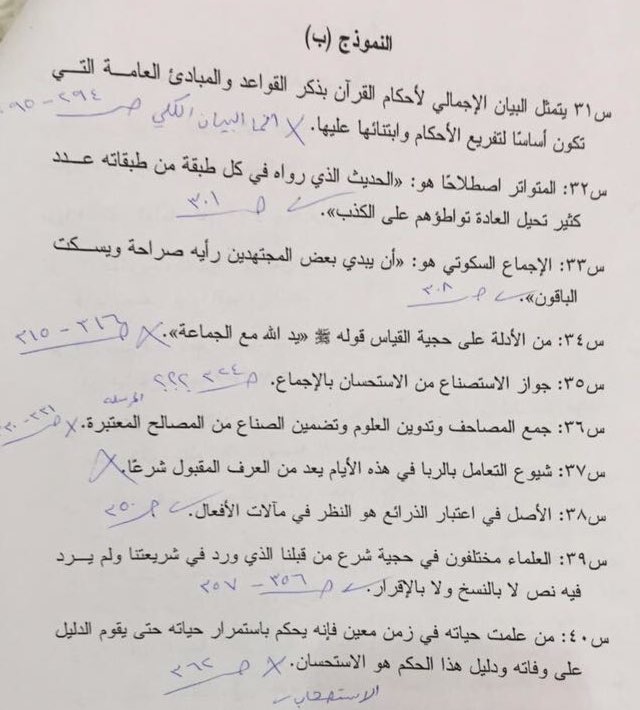 النموذج (ب)
س٣١ يتمثل البيان الإجمالي لأحكام القرآن بذكر القواعد والمبادئ العامة التي
تكون أساسًا لتفريع الأحكام وابتنائها عليها. X البيان الكلي صـ ٢٩٤ - ٢٩٥
س٣٢: المتواتر اصطلاحًا هو: «الحديث الذي رواه في كل طبقة من طبقاته عدد
كثير تحيل العادة تواطؤهم على الكذب». ✓ صـ ٣٠١
س٣٣: الإجماع السكوتي هو: «أن يبدي بعض المجتهدين رأيه صراحة ويسكت
الباقون». ✓ صـ ٣٠٨
س٣٤: من الأدلة على حجية القياس قوله ﷺ «يد الله مع الجماعة». X صـ ٣١٦ - ٣١٥
س٣٥: جواز الاستصناع من الاستحسان بالإجماع. صـ ٣٢٤ ؟؟؟
المرسلة
س٣٦: جمع المصاحف وتدوين العلوم وتضمين الصناع من المصالح المعتبرة. X
س٣٧: شيوع التعامل بالربا في هذه الأيام يعد من العرف المقبول شرعًا. X
س٣٨: الأصل في اعتبار الذرائع هو النظر في مآلات الأفعال. ✓ صـ ٣٥٠
س٣٩: العلماء مختلفون في حجية شرع من قبلنا الذي ورد في شريعتنا ولم يرد
فيه نص لا بالنسخ ولا بالإقرار. ✓ صـ ٣٥٦ - ٣٥٧
س٤٠: من علمت حياته في زمن معين فإنه يحكم باستمرار حياته حتى يقوم الدليل
على وفاته ودليل هذا الحكم هو الاستحسان. X صـ ٣٦٢
الاستصحاب